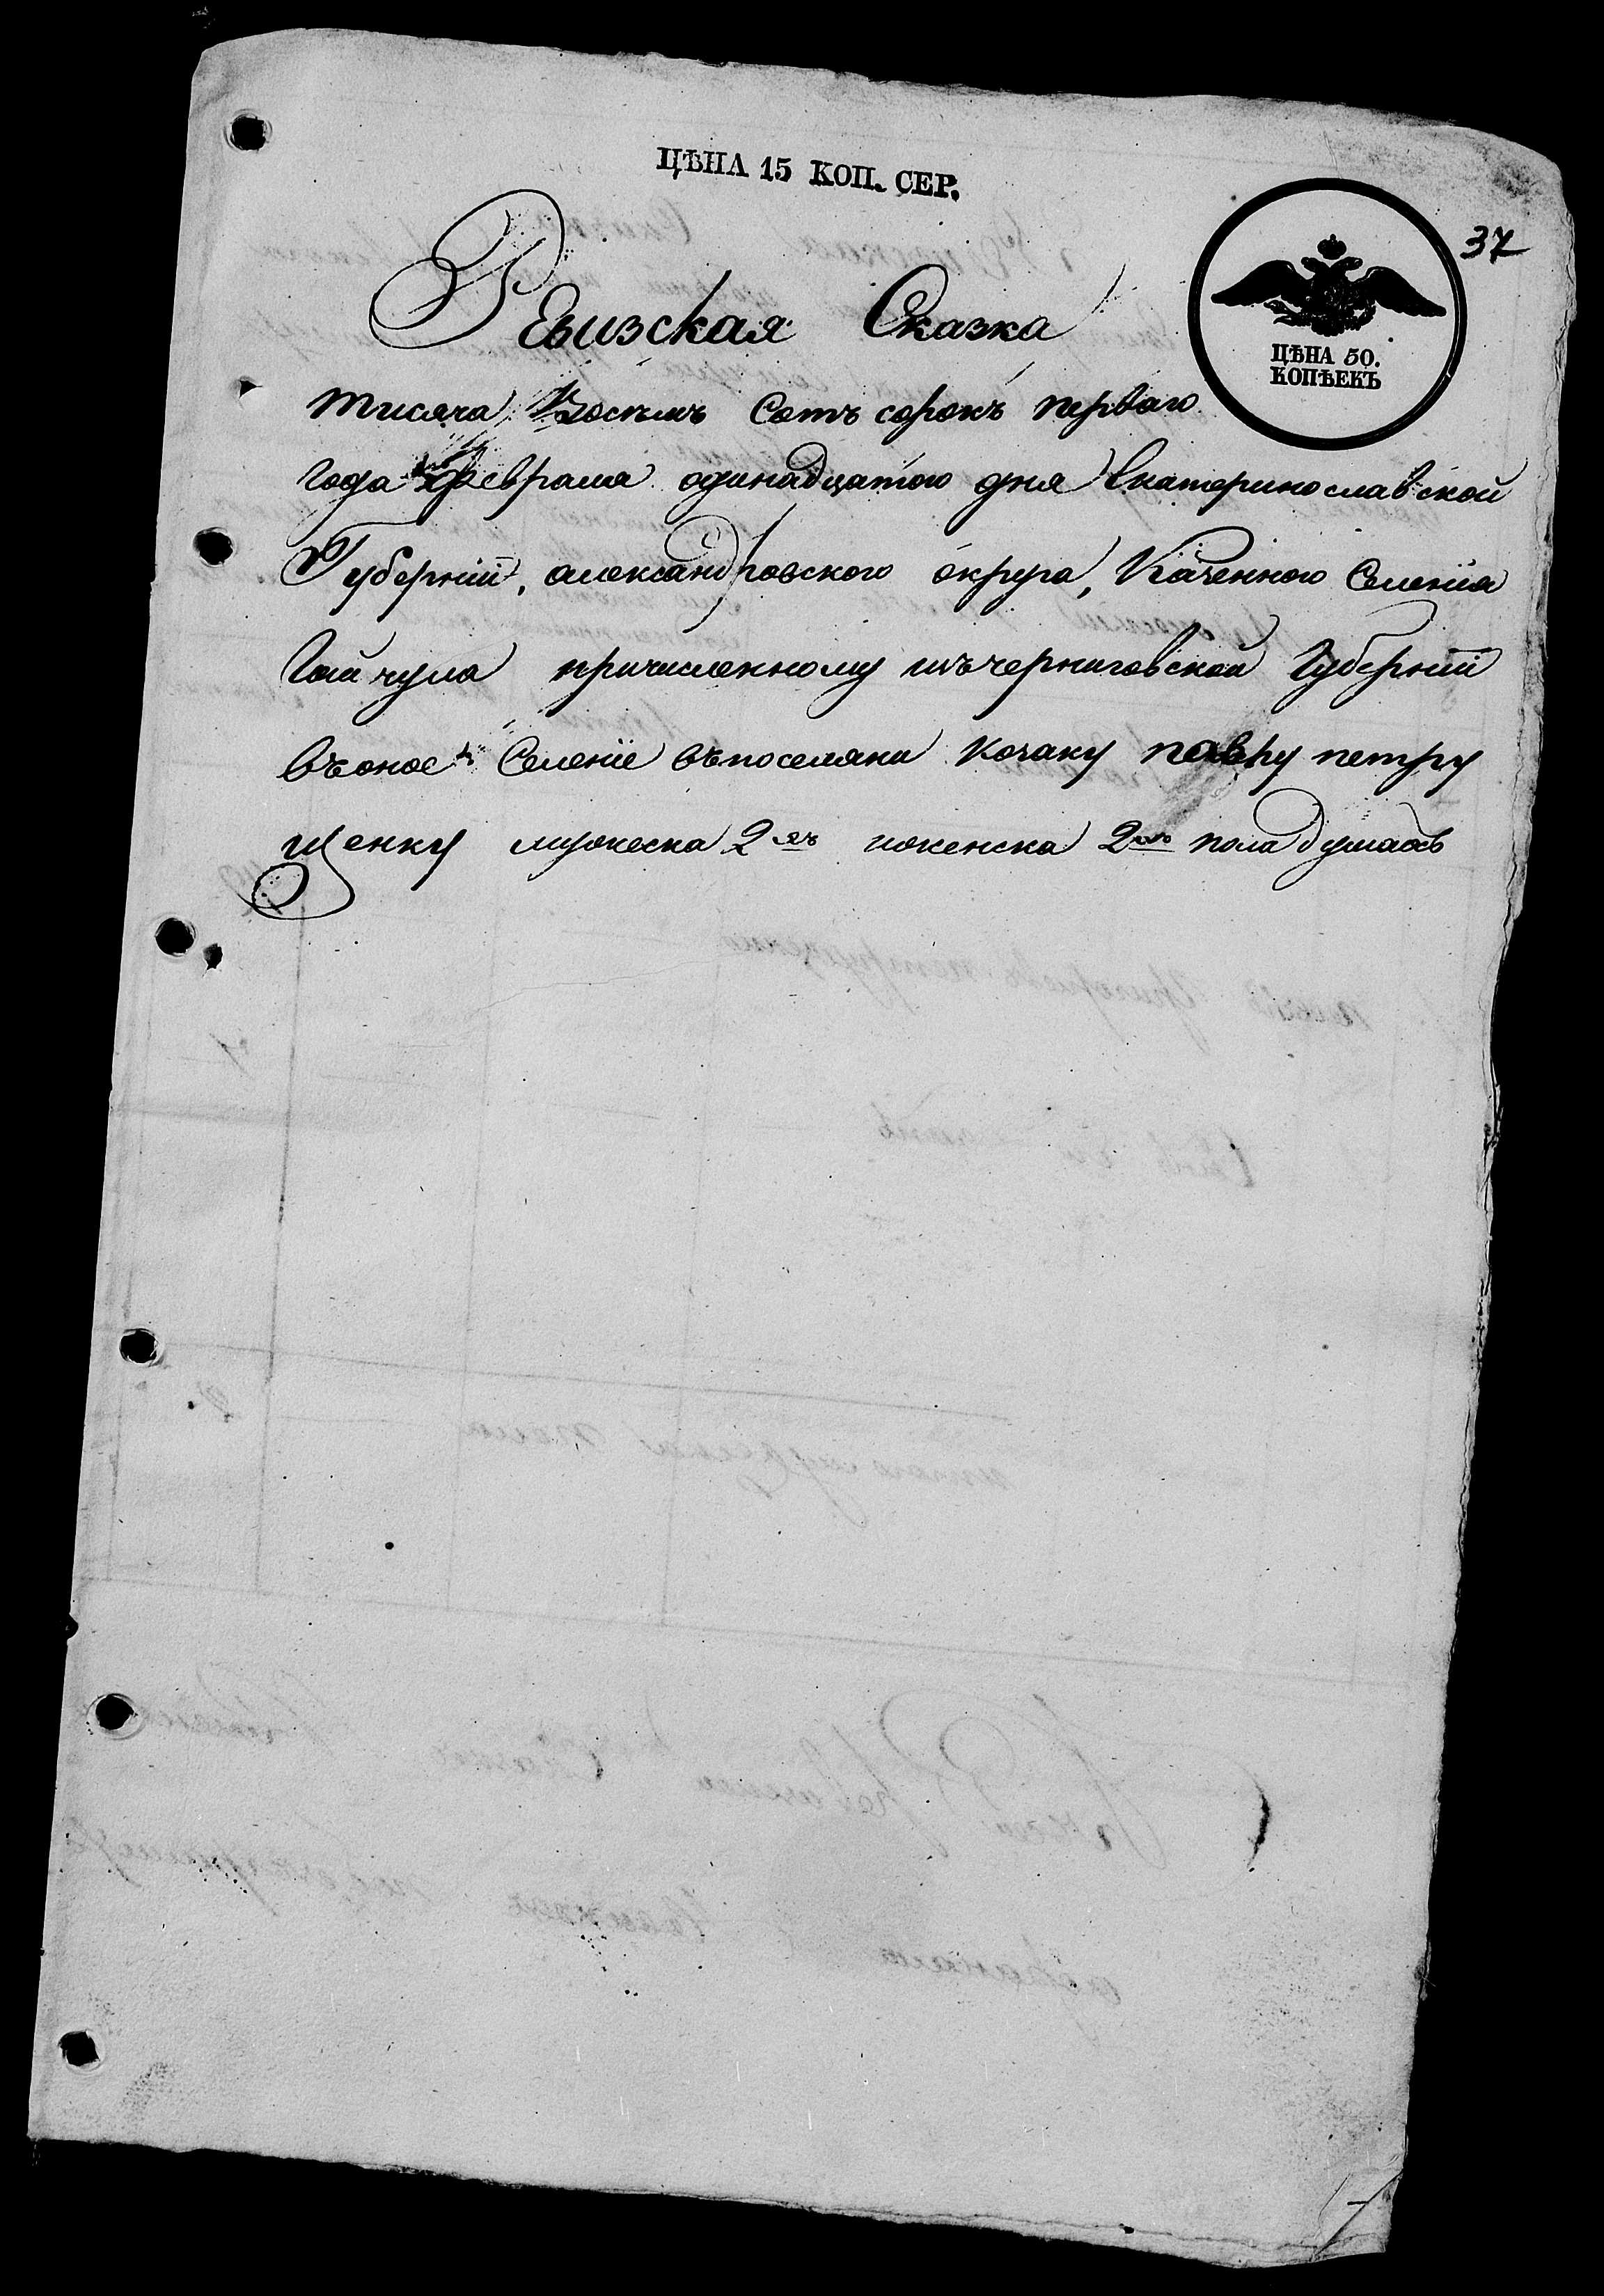 ЦѢНА 15 КОП. СЕР.
37
ЦѢНА 50.
КОПѢЕКЪ
Ревизская Сказка
тисяча Восемъ Сотъ сорокъ перваго
года февраля одинадцатого дня Екатеринославской
Губерніи, александровского округа, Казенного Селенія
Гайчула причисленному изъчерниговской Губерніи
въоное Селеніе въпоселяни Козаку павлу петру
щенку мужеска 2хъ иженска 2хъ пола душахъ